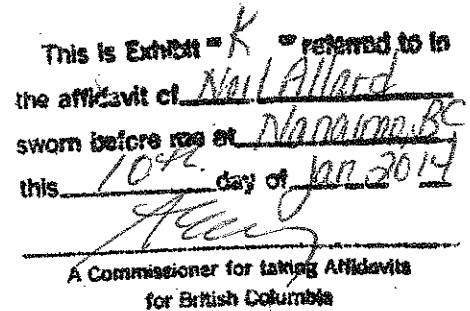 This is Exhibit "K" referred to in
the affidavit of Neil Allard
sworn before me at Nanaimo, BC
this 10th day of Jan 2014
A Commissioner for taking Affidavits
for British Columbia